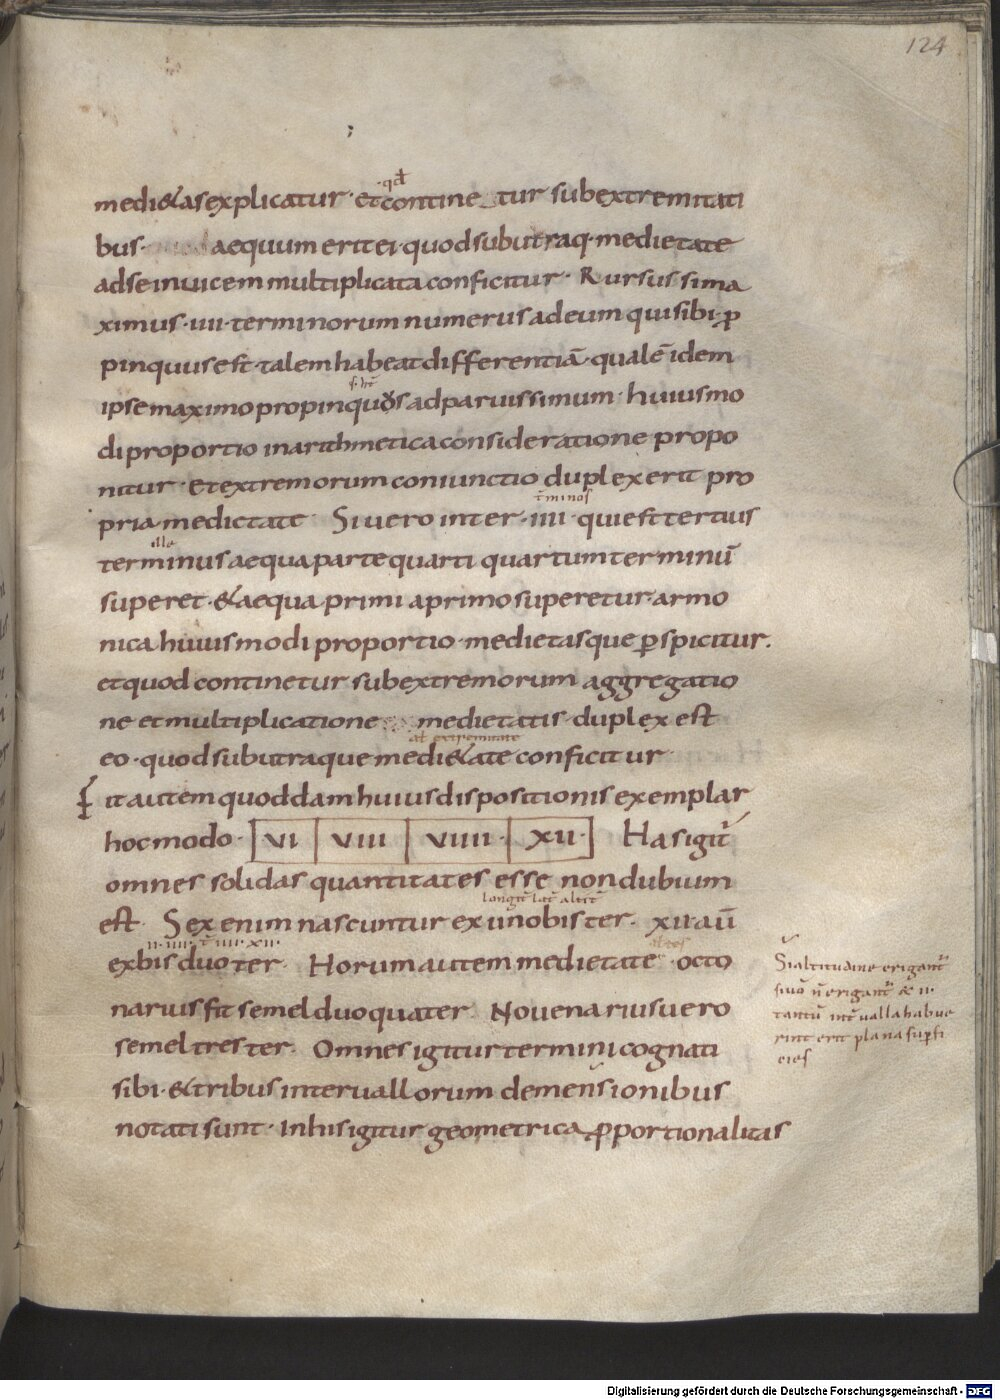 124
qđ
medi&as explicatur · et contine tur sub extremitati
bus · aequum erit ei · quod sub utraq· medietate
ad se inuicem multiplicata conficitur · Rursus si ma
ximus · iiii · terminorum numerus ad eum qui sibi · p
pinquus est · talem habeat differentiā · qualē idem
ipse maximo propinquos ad paruissimum · huiusmo
di proportio in arithmetica consideratione propo
nitur · et extremorum coniunctio duplex erit pro
t̄minos
pria medietate Si uero inter · iiii · qui est tertius
ille
terminus aequa parte quarti quartum terminū
superet · & aequa primi a primo superetur · armo
nica huiusmodi proportio · medietasque pspicitur .
et quod continetur sub extremorum aggregatio
ne et multiplicatione medietatis · duplex est
extremitate
eo · quod sub utraque medi&ate conficitur
Sit autem quoddam huius dispositionis exemplar
hoc modo · VI VIII VIIII · XII · Has igit̄
omnes solidas quantitates esse non dubium
longit̄ lat̄ altit̄
est · Sex enim nascuntur ex uno bis ter · xii · aū
ex bis duo ter · Horum autem medietate · octo
narius fit semel duo quater · Nouenarius uero
semel tres ter · Omnes igitur termini cognati
sibi · & tribus interuallorum demensionibus
notati sunt · In his igitur geometrica pportionalitas
Si altitudine erigant̄
siuō n̄ erigant̄ & ii ·
tantū int̄ualla habue
rint erit plana supfi
cies